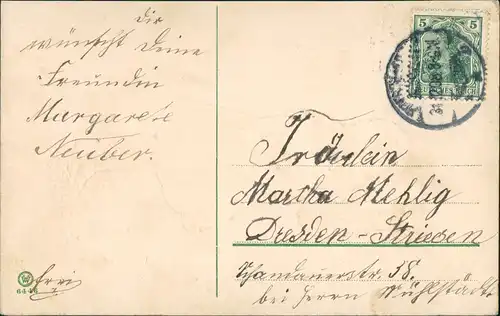 Dir
wünscht Deine
Freundin
Margarete
Neuber.
frei
6446
5
5
Fräulein
Martha Mehlig
Dresden-Striesen
Schandauerstr. 58.
bei Herrn Mühlstädt